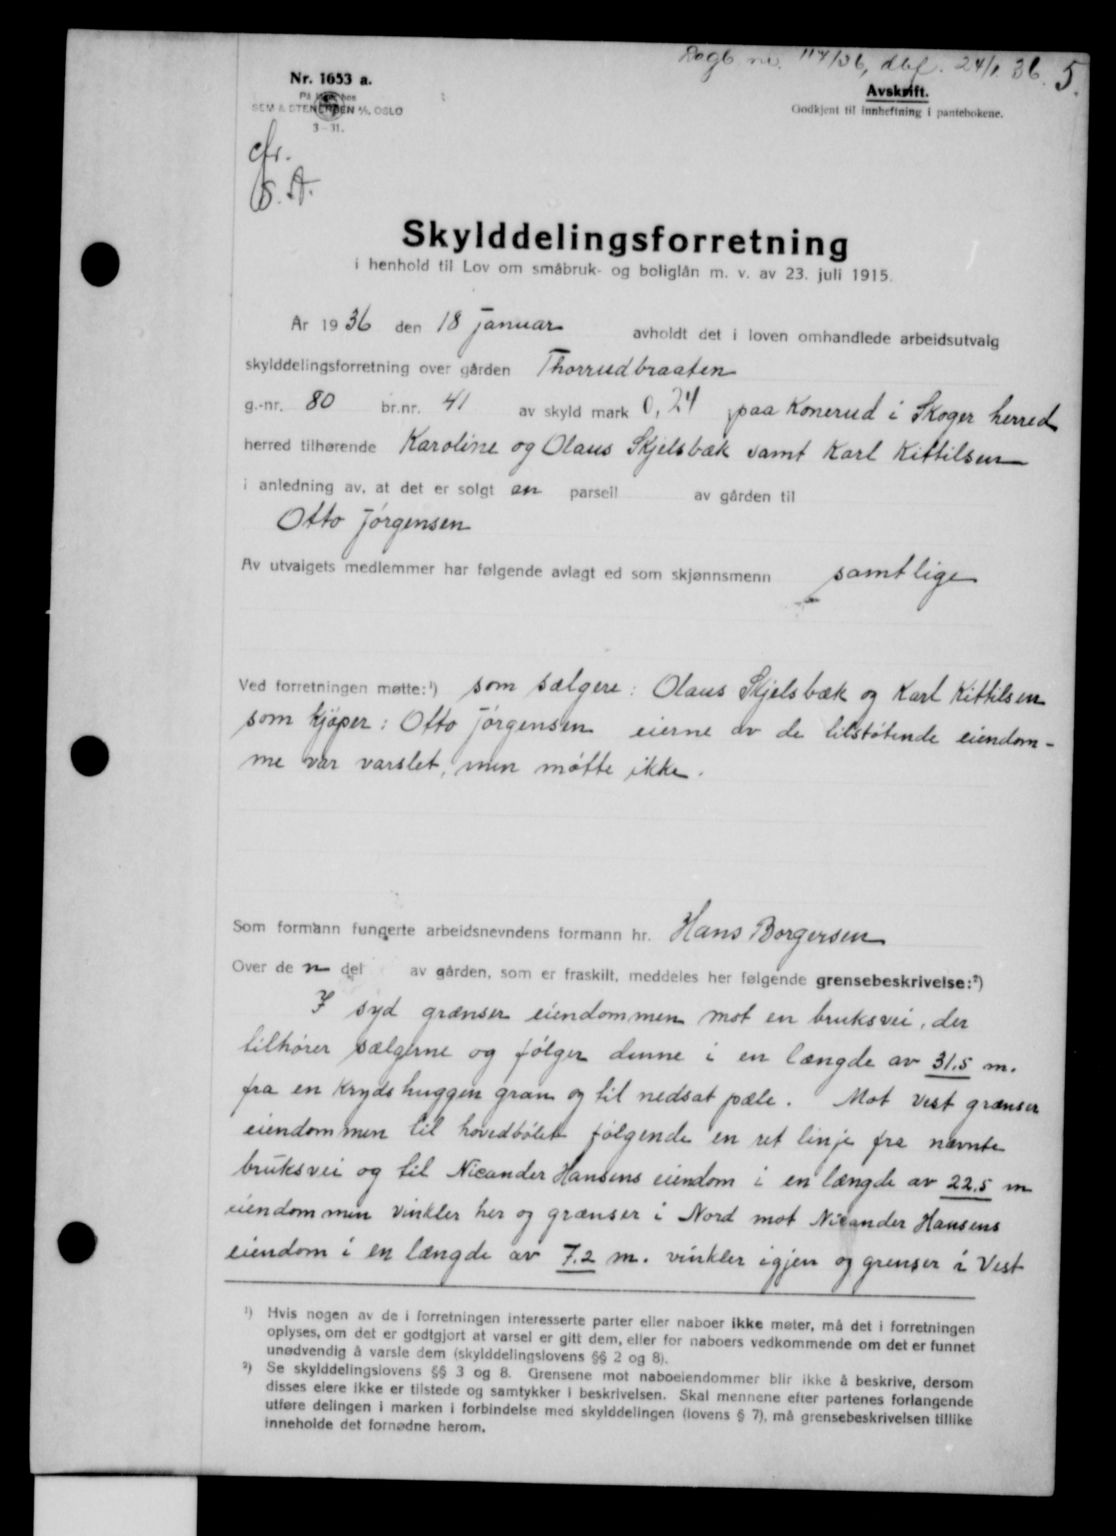 Dagb nr. 114/36, dbf. 24/1 36. 5.
Nr. 1653 a.
På lager hos
SEM & STENERSEN A/S, OSLO
3 - 31.
Avskrift.
Godkjent til innheftning i pantebokene.
cfr.
S. A.
Skylddelingsforretning
i henhold til Lov om småbruk- og boliglån m. v. av 23. juli 1915.
År 1936 den 18 januar avholdt det i loven omhandlede arbeidsutvalg
skylddelingsforretning over gården Thorrudbraaten
g.-nr. 80 br.nr. 41 av skyld mark 0,24 paa Konerud i Skoger herred
herred tilhørende Karoline og Olaus Skjelsbæk samt Karl Kittilsen
i anledning av, at det er solgt en parsell av gården til
Otto Jörgensen
Av utvalgets medlemmer har følgende avlagt ed som skjønnsmenn samtlige
Ved forretningen møtte:¹) som sælgere: Olaus Skjelsbæk og Karl Kittilsen
som kjöper: Otto Jörgensen eierne av de tilstötende eiendom-
me var varslet, men mötte ikke.
Som formann fungerte arbeidsnevndens formann hr. Hans Borgersen
Over de n del av gården, som er fraskilt, meddeles her følgende grensebeskrivelse:²)
I syd grænser eiendommen mot en bruksvei, der
tilhörer sælgerne og fölger denne i en længde av 31.5 m.
fra en krydshuggen gran og til nedsat pæle. Mot vest grænser
eiendommen til hovedbölet fölgende en ret linje fra nævnte
bruksvei og til Nicander Hansens eiendom i en længde av 22.5 m
eiendommen vinkler her og grænser i Nord mot Nicander Hansens
eiendom i en længde av 7.2 m. vinkler igjen og grenser i Vest
¹) Hvis nogen av de i forretningen interesserte parter eller naboer ikke møter, må det i forretningen
oplyses, om det er godtgjort at varsel er gitt dem, eller for naboers vedkommende om det er funnet
unødvendig å varsle dem (skylddelingslovens §§ 2 og 8).
²) Se skylddelingslovens §§ 3 og 8. Grensene mot naboeiendommer blir ikke å beskrive, dersom
disses eiere ikke er tilstede og samtykker i beskrivelsen. Skal mennene efter partenes forlangende
utføre delingen i marken i forbindelse med skylddelingen (lovens § 7), må grensebeskrivelsen tillike
inneholde det fornødne herom.